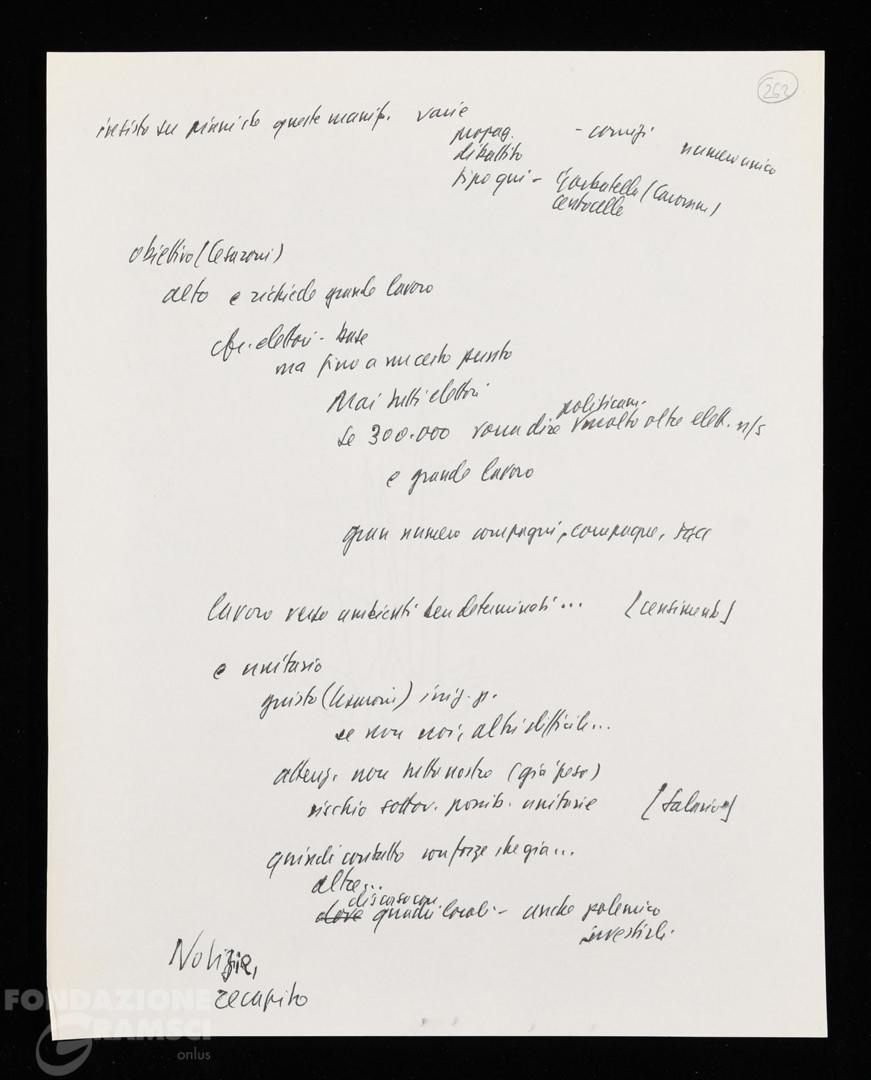 262
insisto su queste manif. varie
propag. - comizi
dibattito numero unico
tipo qui - Garbatella (
Centocelle
obiettivo (Cesaroni)
alto e richiede grande lavoro
cfr. elettori - base
ma fino a un certo punto
Mai tutti elettori
politicam.
se 300.000 vorrà dire molto oltre elett. n/s
e grande lavoro
gran numero compagni, compagne,
lavoro verso ambienti ben determinati... [censimento]
e unitario
giusto (Cesaroni) iniz. p.
se non noi, altri difficile...
attenz. non tutto nostro (già peso)
rischio sottov. possib. unitarie [Salario]
quindi contatto con forze che già...
altre...
discorso con
dove quadri locali - anche polemico
investirli.
Notizie,
recapito
FONDAZIONE
GRAMSCI
onlus